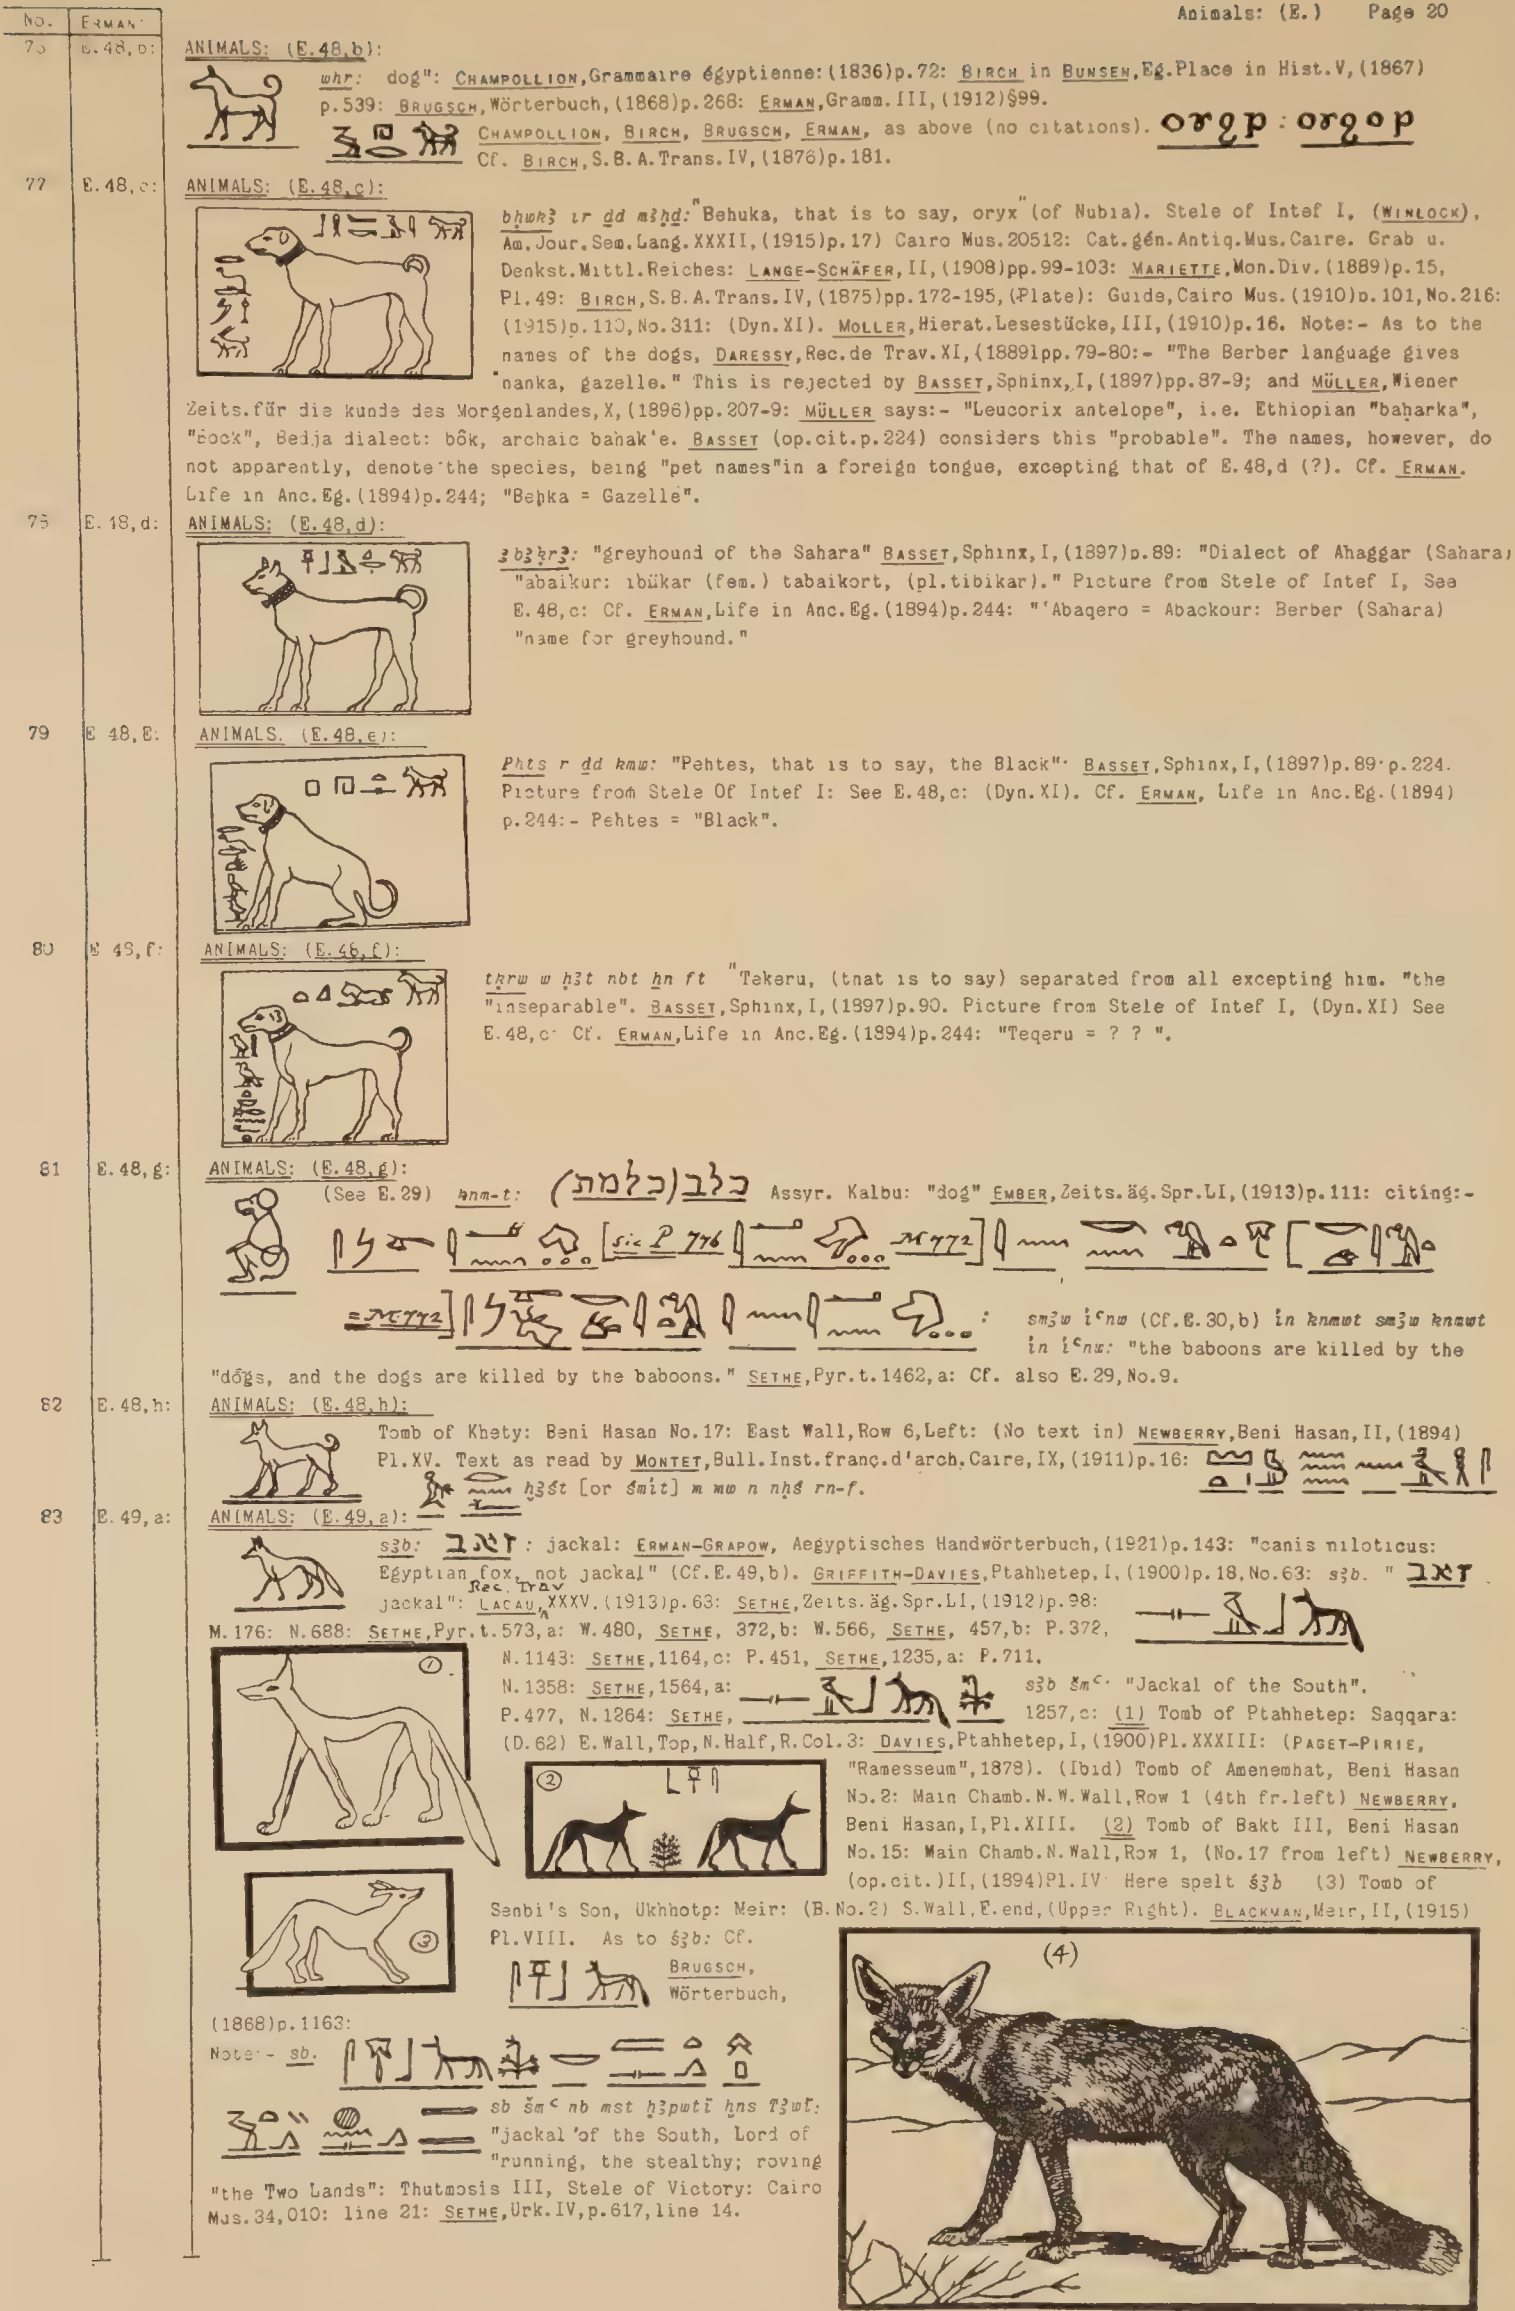 Animals: (E.) Page 20
No. ERMAN:
76 E.48,b: ANIMALS: (E.48,b):
whr: dog": CHAMPOLLION,Grammaire égyptienne:(1836)p.72: BIRCH in BUNSEN,Eg.Place in Hist.V,(1867)
p.539: BRUGSCH,Wörterbuch,(1868)p.268: ERMAN,Gramm.III,(1912)§99.
CHAMPOLLION, BIRCH, BRUGSCH, ERMAN, as above (no citations).
Cf. BIRCH,S.B.A.Trans.IV,(1876)p.181.
77 E.48,c: ANIMALS: (E.48,c):
bḥwkꜣ ır ḏd mꜣḥḏ: "Behuka, that is to say, oryx" (of Nubia). Stele of Intef I, (WINLOCK),
Am.Jour.Sem.Lang.XXXII,(1915)p.17) Cairo Mus.20512: Cat.gén.Antiq.Mus.Caire. Grab u.
Denkst.Mittl.Reiches: LANGE-SCHÄFER,II,(1908)pp.99-103: MARIETTE,Mon.Div.(1889)p.15,
Pl.49: BIRCH,S.B.A.Trans.IV,(1875)pp.172-195,(Plate): Guide,Cairo Mus.(1910)p.101,No.216:
(1915)p.110,No.311: (Dyn.XI). MOLLER,Hierat.Lesestücke,III,(1910)p.16. Note:- As to the
names of the dogs, DARESSY,Rec.de Trav.XI,(1889)pp.79-80:- "The Berber language gives
"nanka, gazelle." This is rejected by BASSET,Sphinx,I,(1897)pp.87-9; and MÜLLER,Wiener
Zeits.für die kunde des Morgenlandes,X,(1896)pp.207-9: MÜLLER says:- "Leucorix antelope", i.e. Ethiopian "baḥarka",
"Bock", Bedja dialect: bôk, archaic bahak'e. BASSET (op.cit.p.224) considers this "probable". The names, however, do
not apparently, denote the species, being "pet names"in a foreign tongue, excepting that of E.48,d (?). Cf. ERMAN.
Life in Anc.Eg.(1894)p.244; "Beḥka = Gazelle".
78 E.48,d: ANIMALS: (E.48,d):
ꜣbꜣḳrꜣ: "greyhound of the Sahara" BASSET,Sphinx,I,(1897)p.89: "Dialect of Ahaggar (Sahara)
"abaikur: ibükar (fem.) tabaikort, (pl.tibikar)." Picture from Stele of Intef I, See
E.48,c: Cf. ERMAN,Life in Anc.Eg.(1894)p.244: "'Abaqero = Abackour: Berber (Sahara)
"name for greyhound."
79 E 48,E: ANIMALS. (E.48,e):
Phts r ḏd kmw: "Pehtes, that is to say, the Black": BASSET,Sphinx,I,(1897)p.89:p.224.
Picture from Stele Of Intef I: See E.48,c: (Dyn.XI). Cf. ERMAN, Life in Anc.Eg.(1894)
p.244:- Pehtes = "Black".
80 E 48,f: ANIMALS: (E.48,f):
tḳrw w ḥꜣt nbt ẖn ft "Tekeru, (that is to say) separated from all excepting him. "the
"inseparable". BASSET,Sphinx,I,(1897)p.90. Picture from Stele of Intef I, (Dyn.XI) See
E.48,c: Cf. ERMAN,Life in Anc.Eg.(1894)p.244: "Teqeru = ? ? ".
81 E.48,g: ANIMALS: (E.48,g):
(See E.29) knm-t: כלב(כלמת) Assyr. Kalbu: "dog" EMBER,Zeits.äg.Spr.LI,(1913)p.111: citing:-
[sic P 776 M 772]
= M.772] : smꜣw iꜥnw (Cf.E.30,b) in knmwt smꜣw knmwt
in iꜥnw: "the baboons are killed by the
"dogs, and the dogs are killed by the baboons." SETHE,Pyr.t.1462,a: Cf. also E.29,No.9.
82 E.48,h: ANIMALS: (E.48,h):
Tomb of Khety: Beni Hasan No.17: East Wall,Row 6,Left: (No text in) NEWBERRY,Beni Hasan,II,(1894)
Pl.XV. Text as read by MONTET,Bull.Inst.franç.d'arch.Caire,IX,(1911)p.16:
ḫꜣśt [or śmit] m mw n nḥś rn-f.
83 E.49,a: ANIMALS: (E.49,a):
sꜣb: זאב : jackal: ERMAN-GRAPOW, Aegyptisches Handwörterbuch,(1921)p.143: "canis niloticus:
Egyptian fox, not jackal" (Cf.E.49,b). GRIFFITH-DAVIES,Ptahhetep,I,(1900)p.18,No.63: sꜣb. " זאב
jackal": LACAU, Rec. Trav XXXV,(1913)p.63: SETHE,Zeits.äg.Spr.LI,(1912)p.98:
M.176: N.688: SETHE,Pyr.t.573,a: W.480, SETHE, 372,b: W.566, SETHE, 457,b: P.372,
N.1143: SETHE,1164,c: P.451, SETHE,1235,a: P.711,
N.1358: SETHE,1564,a: sꜣb šmꜥ: "Jackal of the South".
P.477, N.1264: SETHE, 1257,c: (1) Tomb of Ptahhetep: Saqqara:
(D.62) E.Wall,Top,N.Half,R.Col.3: DAVIES,Ptahhetep,I,(1900)Pl.XXXIII: (PAGET-PIRIE,
"Ramesseum",1878). (Ibid) Tomb of Amenemhat, Beni Hasan
No.2: Main Chamb.N.W.Wall,Row 1 (4th fr.left) NEWBERRY,
Beni Hasan,I,Pl.XIII. (2) Tomb of Bakt III, Beni Hasan
No.15: Main Chamb.N.Wall,Row 1, (No.17 from left) NEWBERRY,
(op.cit.)II,(1894)Pl.IV: Here spelt śꜣb (3) Tomb of
Senbi's Son, Ukhhotp: Meir: (B.No.2) S.Wall,E.end,(Upper Right). BLACKMAN,Meir,II,(1915)
Pl.VIII. As to śꜣb: Cf.
BRUGSCH,
Wörterbuch,
(1868)p.1163:
Note:- sb.
sb šmꜥ nb mst ḥꜣpwtï ḫns Tꜣwï:
"jackal of the South, Lord of
"running, the stealthy; roving
"the Two Lands": Thutmosis III, Stele of Victory: Cairo
Mus.34,010: line 21: SETHE,Urk.IV,p.617,line 14.
①
②
③
(4)